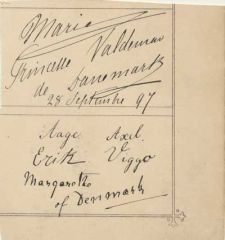 Marie
Princesse Valdemar
de Danemark
28 Septembre 97
Aage Axel
Erik Viggo
Margaretha
of Denmark